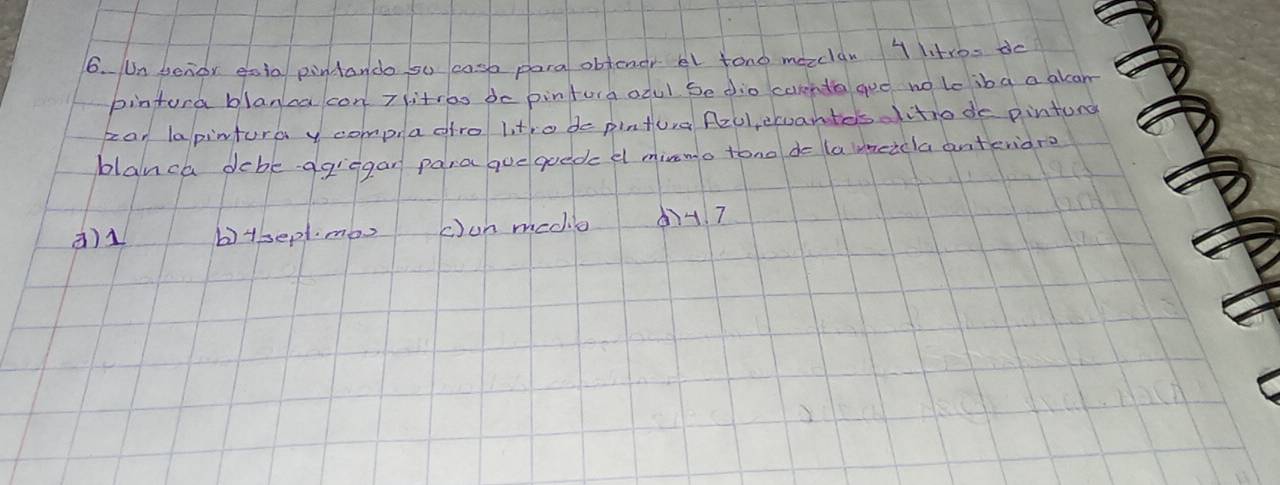 6.- Un señor esta pintando su casa para obtener el tono mezclan 4 litros de
pintura blanca con 7 litros de pintura azul Se dio cuenta que no le iba a alcan
zar la pintura y compra otro litro de pintura Azul, ¿cuantos litro de pintura
blanca debe agregar para que quede el mismo tono de la mezcla anterior?
a) 1 b) 4 septimos c) un medio d) 4.7